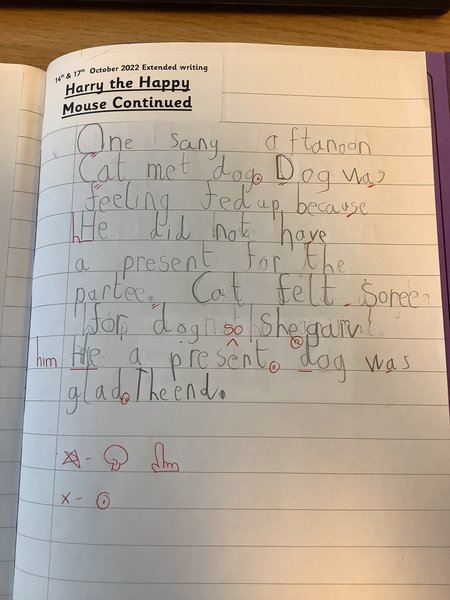 14th & 17th October 2022 Extended writing
Harry the Happy
Mouse Continued
One sany aftanoon
Cat met dog. Dog was
feeling fed up because
h He did not have
a present for the
partee. Cat felt soree
for dog so She gav
him He a present. dog was
glad. The end.